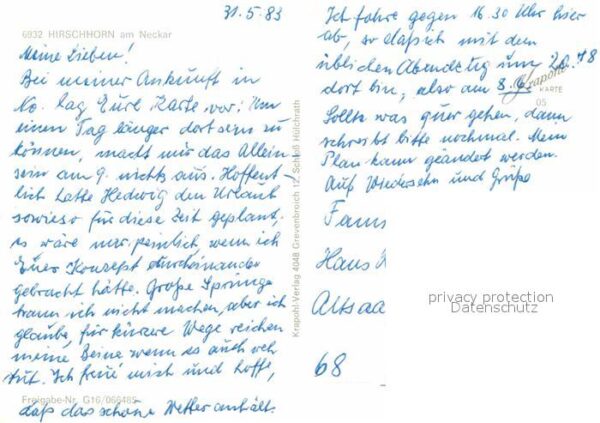 31.5.83
6932 HIRSCHHORN am Neckar
Meine Lieben!
Bei meiner Ankunft in
No. lag Eure Karte vor. Um
einen Tag länger dort sein zu
können, macht mir das Allein
sein am 9. nichts aus. Hoffent-
lich hatte Hedwig den Urlaub
sowieso für diese Zeit geplant,
es wäre mir peinlich, wenn ich
Euer Konzept durcheinander
gebracht hätte. Große Sprünge
kann ich nicht machen, aber ich
glaube, für kürzere Wege reichen
meine Beine wenn es auch weh
tut. Ich freue mich und hoffe,
Freigabe-Nr. G16/066485
daß das schöne Wetter anhält.
Krapohl-Verlag 4048 Grevenbroich 12, Schloß Hülchrath
Ich fahre gegen 16.30 Uhr hier
ab, so daß ich mit dem
üblichen Abendzug um 20.48
dort bin; also am 8.6.
Krapohl
KARTE
05
Sollte was quer gehen, dann
schreibt bitte nochmal. Mein
Plan kann geändert werden.
Auf Wiedersehn und Grüße
Fam
Hans
Altsaa
68
privacy protection
Datenschutz